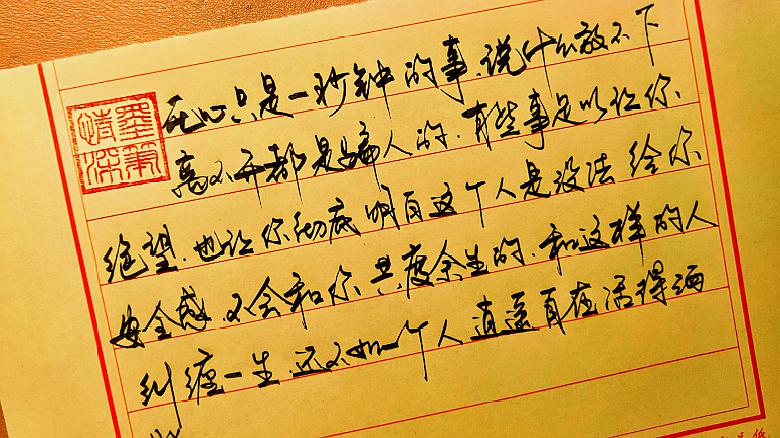 墨筆情深
死心只是一秒钟的事、说什么放不下
离不开都是骗人的、有些事足以让你
绝望、也让你彻底明白这个人是没法给你
安全感、不会和你共度余生的、和这样的人
纠缠一生、还不如一个人逍遥自在活得洒